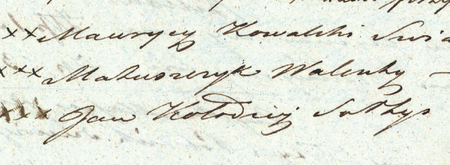 xx Maurycy Kowalski
xxx Matuszczyk Walenty —
xxx Jan Kołodziej Sołtys